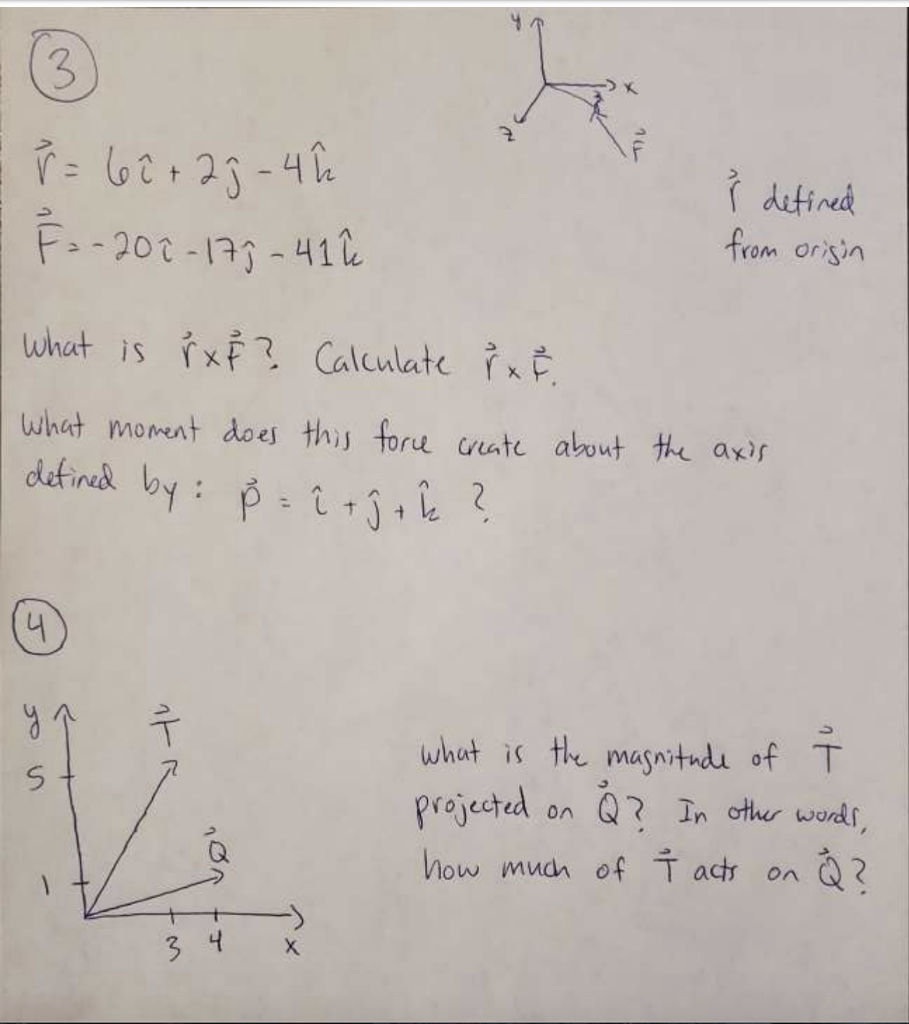 3
y
x
z
F⃗
r⃗ = 6î + 2ĵ - 4k̂
F⃗ = -20î - 17ĵ - 41k̂
r⃗ defined
from origin
What is r⃗ x F⃗ ? Calculate r⃗ x F⃗.
What moment does this force create about the axis
defined by: p⃗ = î + ĵ + k̂ ?
4
y
T⃗
5
Q⃗
1
3 4 x
What is the magnitude of T⃗
projected on Q⃗? In other words,
how much of T⃗ acts on Q⃗?